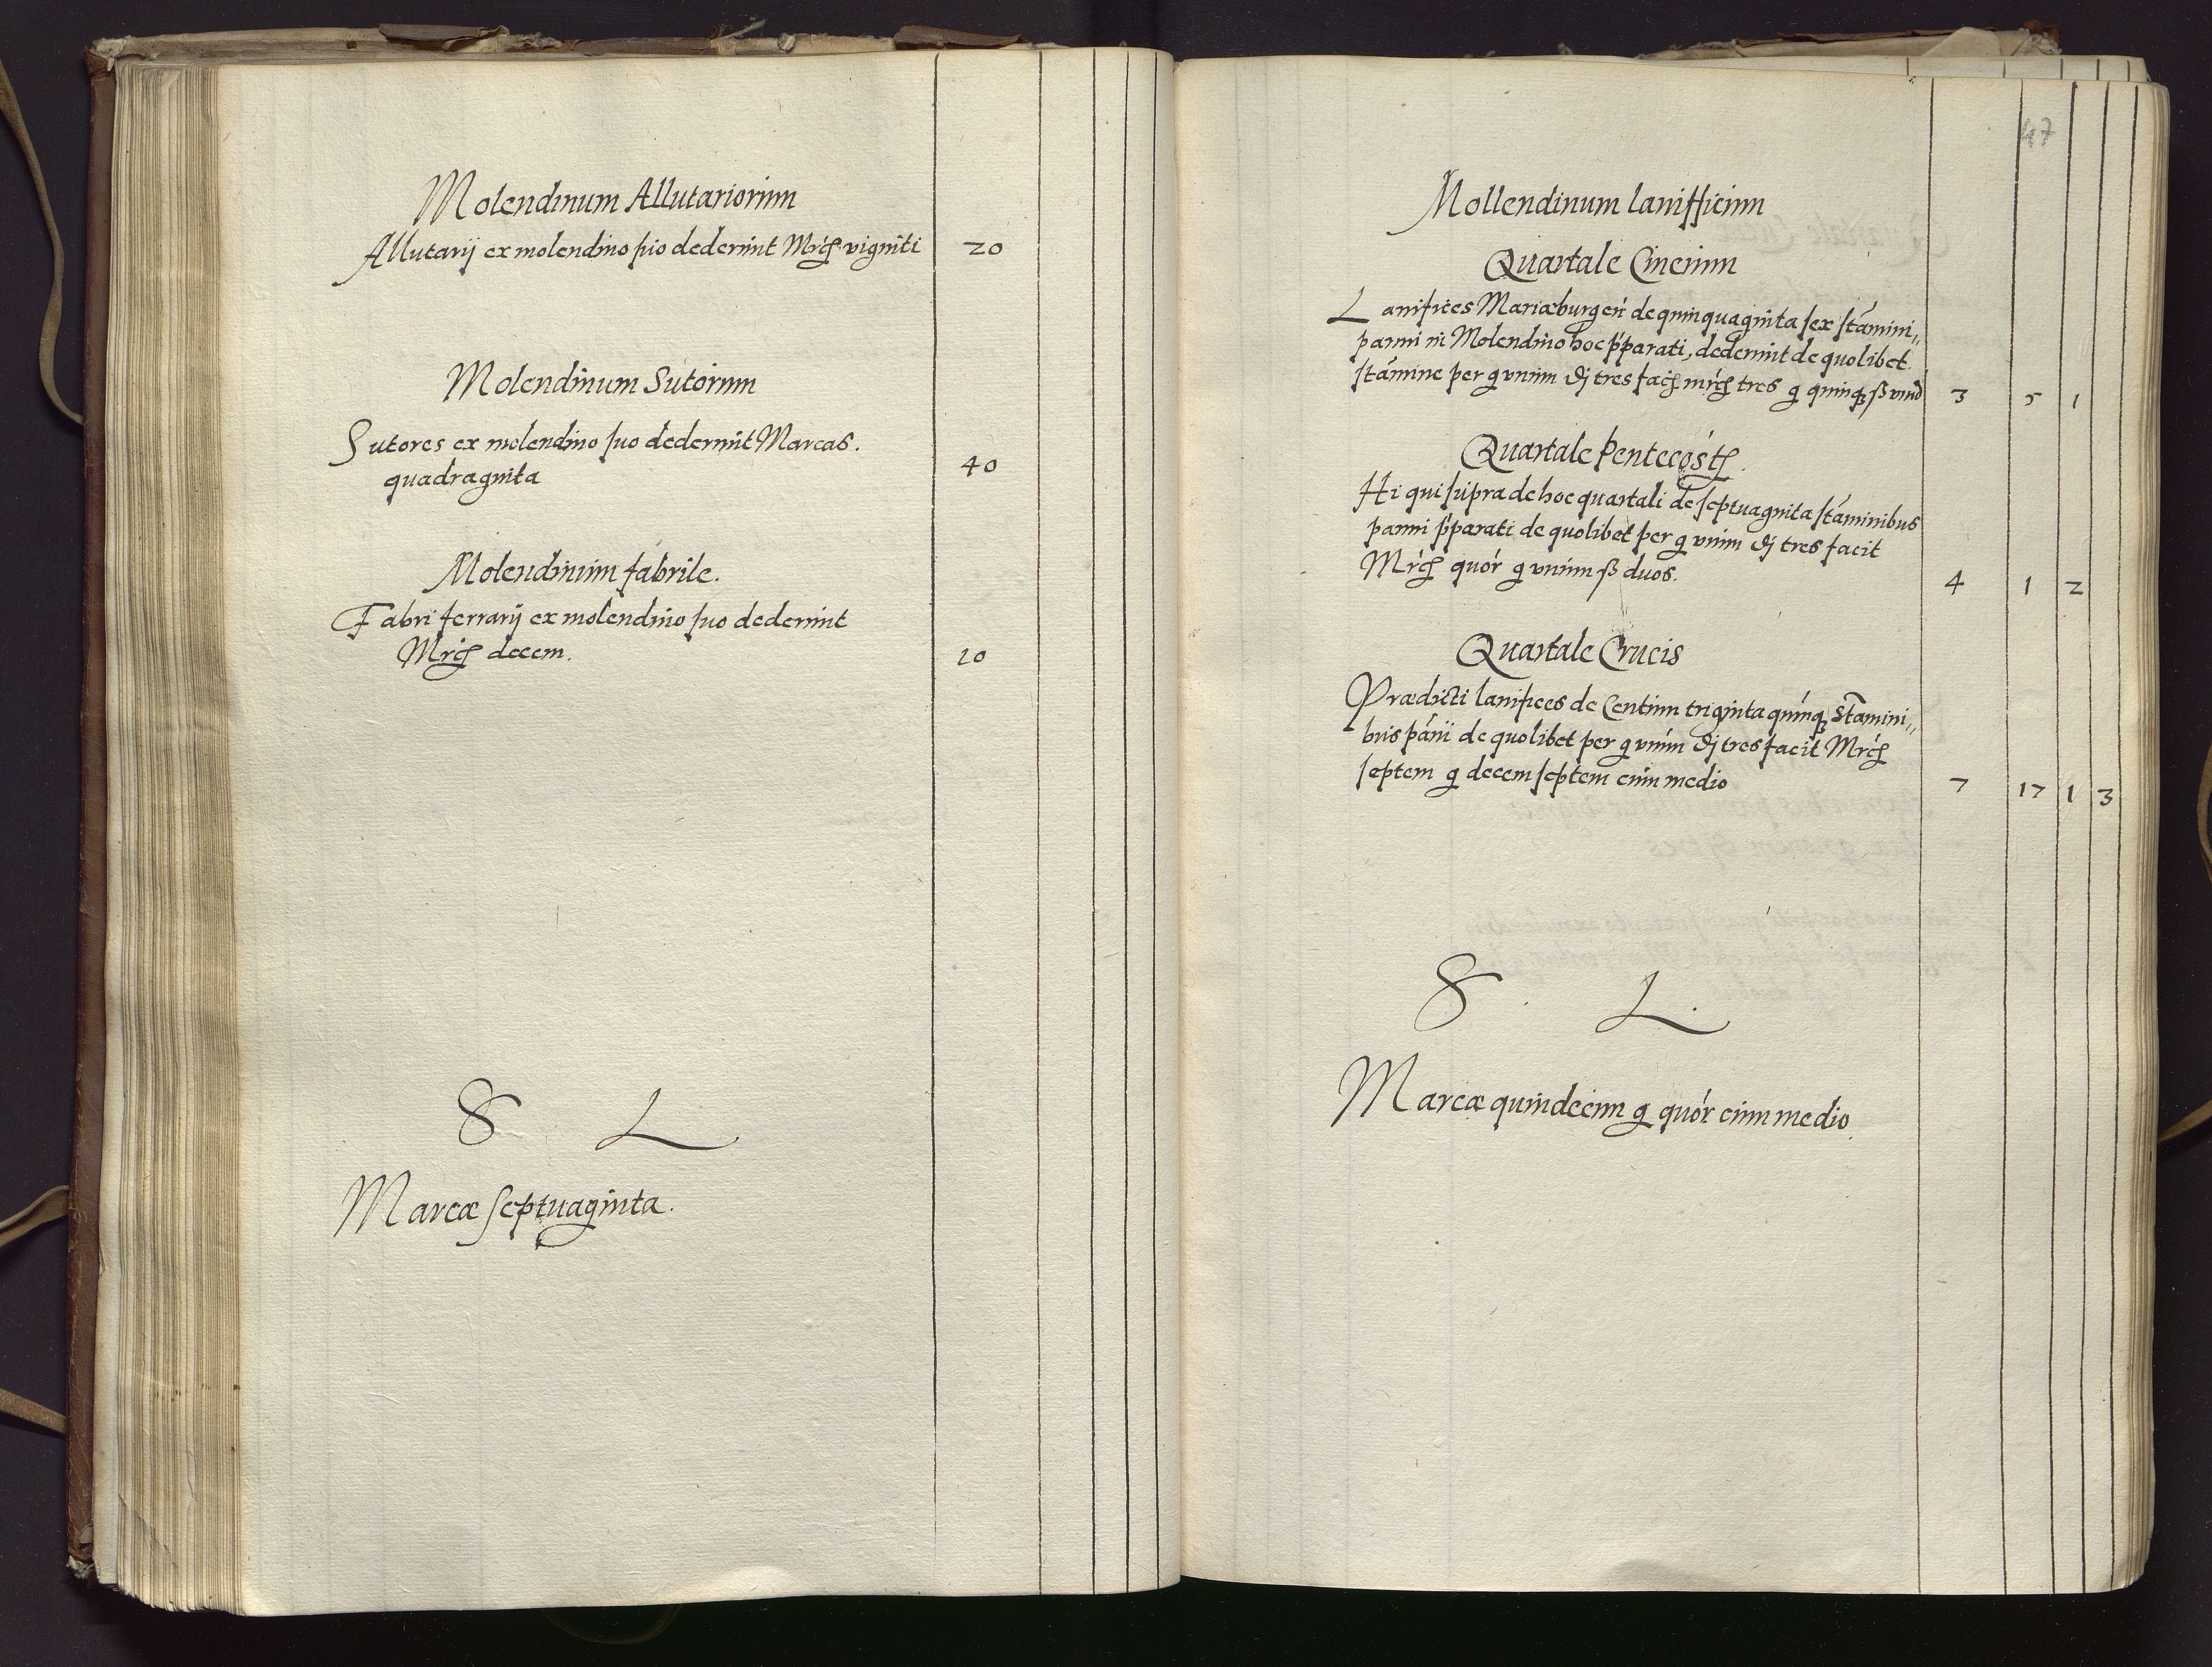 Molendinum Allutariorum
Allutarij ex molendino suo dederunt Mrcs viginti 20
Molendinum Sutorum
Sutores ex molendino suo dederunt Marcas.
quadraginta 40
Molendinum fabrile.
Fabri ferrarij ex molendino suo dederunt
Mrcs decem. 10
S L
Marcæ septuaginta.
47
Mollendinum lanifficum
Quartale Cinerum
Lanifices Mariæburgeń de quinquaginta sex stámini„
panni in Molendino hoc pṕarati, dederunt de quolibet.
stámine per g unum dj tres facit mrcs tres g quinq ß unū 3 5 1
Quartale Pentecost
Hi qui supra de hoc quartali de septuaginta stáminibus
panni pṕarati de quolibet per g unum dj tres facit
Mrcs quór g unum ß duos. 4 1 2
Quartale Crucis
Prædicti lanifices de Centum triginta quinq stamini„
bus páñi de quolibet per g unum dj tres facit Mrcs
septem g decem septem cum medio 7 17 1 3
S. L.
Marcæ quindecim g quór cum medio